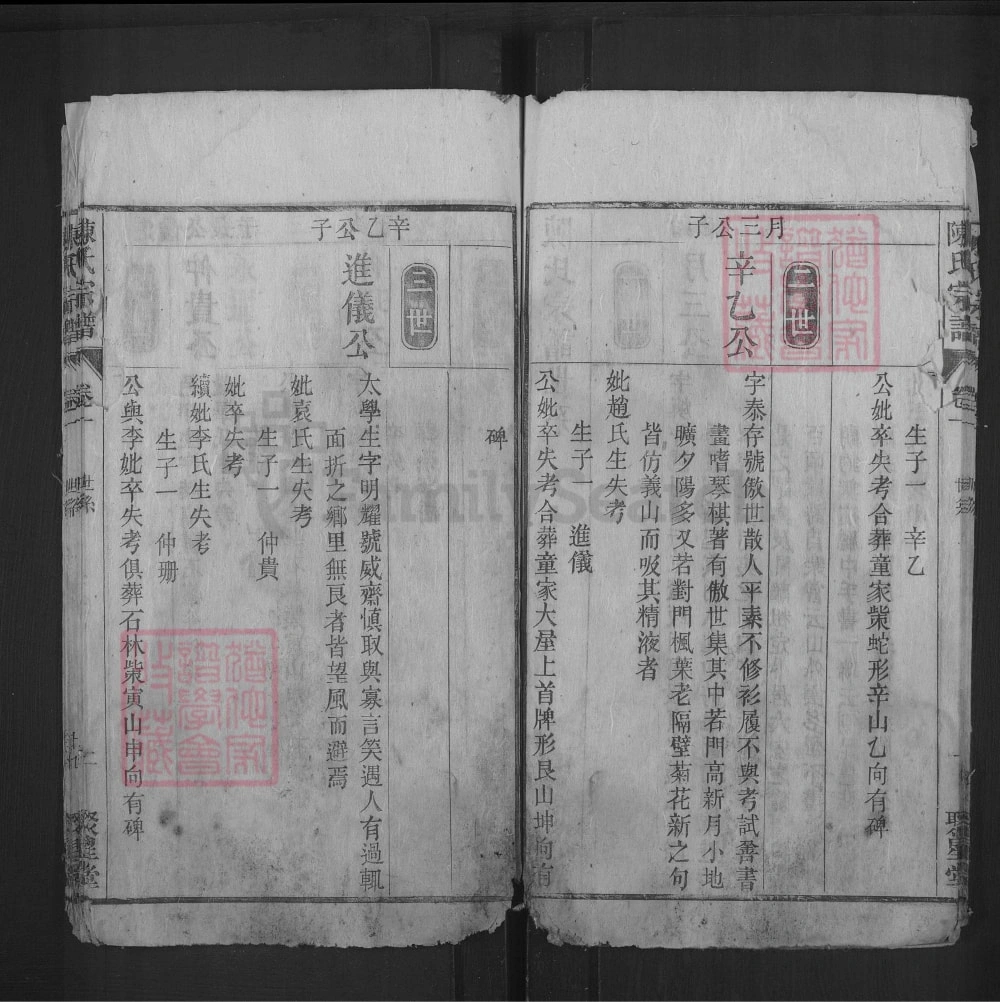 陳氏宗譜
卷一
世系
聚星堂
生子一 辛乙
公妣卒失考合葬童家棠蛇形辛山乙向有碑
月三公子
二世
辛乙公
字泰存號傲世散人平素不修衫履不與考試善書
畫嗜琴棋著有傲世集其中若門高新月小地
曠夕陽多又若對門楓葉老隔壁菊花新之句
皆仿義山而吸其精液者
妣趙氏生失考
生子一 進儀
公妣卒失考合葬童家大屋上首牌形艮山坤向有
碑
辛乙公子
三世
進儀公
太學生字明耀號威齋慎取與寡言笑遇人有過輒
面折之鄉里無良者皆望風而避焉
妣袁氏生失考
生子一 仲貴
妣卒失考
續妣李氏生失考
生子一 仲珊
公與李妣卒失考俱葬石林棠寅山申向有碑
陳氏宗譜
卷一
世系
聚星堂
FamilySearch